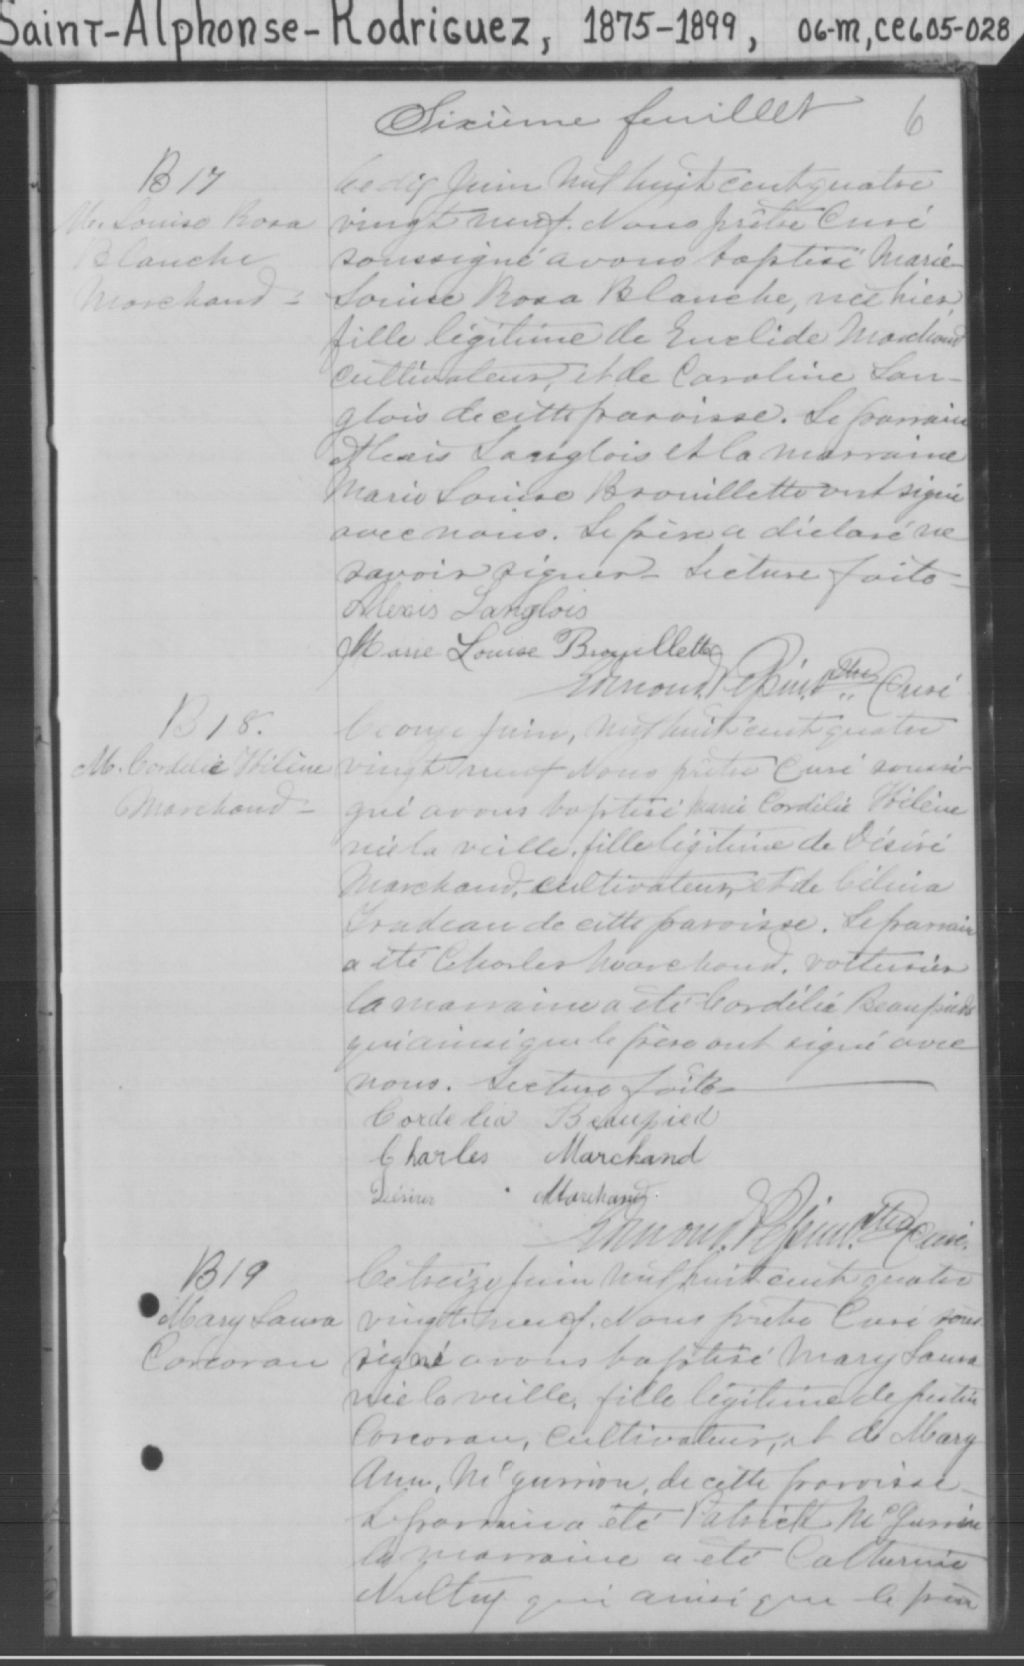 Saint-Alphonse-Rodriguez, 1875-1899, 06-M, CE605-028
Sixième feuillet 6
B 17
M. Louise Rosa
Blanche
Marchand -
Ce dix Juin Mil huit cent quatre
vingt neuf. Nous prêtre Curé
soussigné avons baptisé Marie
Louise Rosa Blanche, née hier,
fille légitime de Euclide Marchand
cultivateur, et de Caroline Lan-
glois de cette paroisse. Le parrain
Alexis Langlois et la marraine
Marie Louise Brouillette ont signé
avec nous. Le père a déclaré ne
savoir signer - Lecture faite -
Alexis Langlois
Marie Louise Brouillette
Edmond Ptre Curé
B 18.
M. Cordélie Hélène
Marchand -
Ce onze Juin, Mil huit cent quatre
vingt neuf Nous prêtre Curé soussi-
gné avons baptisé Marie Cordélie Hélène
née la veille, fille légitime de Désiré
Marchand, cultivateur, et de Célina
Trudeau de cette paroisse. Le parrain
a été Charles Marchand, voiturier
la marraine a été Cordélie Beaupied
qui ainsi que le père ont signé avec
nous. Lecture faite -
Cordelia Beaupied
Charles Marchand
Désiré Marchand
Edmond Ptre Curé.
B 19
Mary Laura
Corcoran
Ce treize Juin Mil huit cent quatre
vingt neuf. Nous prêtre Curé sous-
signé avons baptisé Mary Laura
née la veille, fille légitime de
Corcoran, cultivateur, et de Mary
Ann, McGurrin, de cette paroisse -
Le parrain a été Patrick McGurrin
la marraine a été Catherine
Nulty qui ainsi que le père